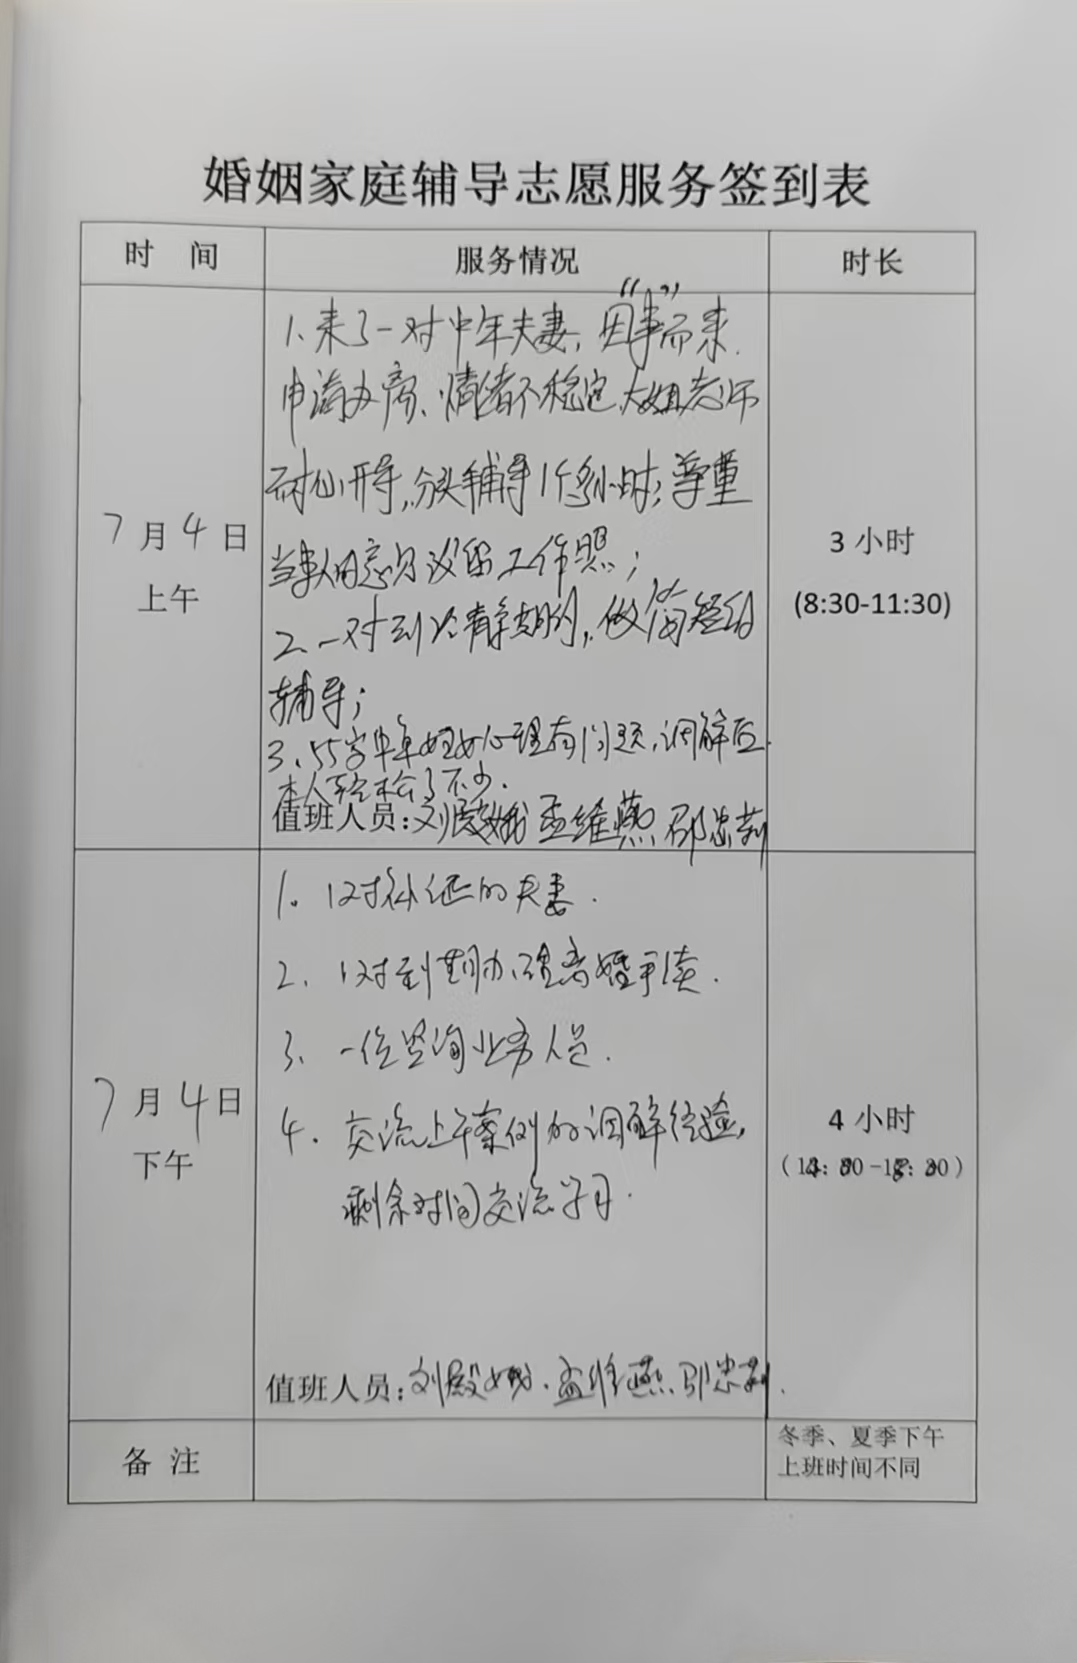 婚姻家庭辅导志愿服务签到表
时 间
服务情况
时长
7月4日
上午
1、来了一对中年夫妻，因“事”而来.
申请办离、情绪不稳定,大姐老师
耐心开导,分头辅导1个多小时;尊重
当事人的意见没留工作照;
2、一对到冷静期的,做简短的
辅导;
3、55岁中年妇女心理有问题,调解后
本人轻松了不少.
值班人员:刘殿娥 孟维燕 邵忠莉
3 小时
(8:30-11:30)
7月4日
下午
1. 1对补证的夫妻.
2. 1对到期办理离婚手续.
3、一位咨询业务人员.
4. 交流上午案例的调解经验,
剩余时间交流学习.
值班人员:刘殿娥.孟维燕.邵忠莉.
4 小时
备 注
冬季、夏季下午
上班时间不同